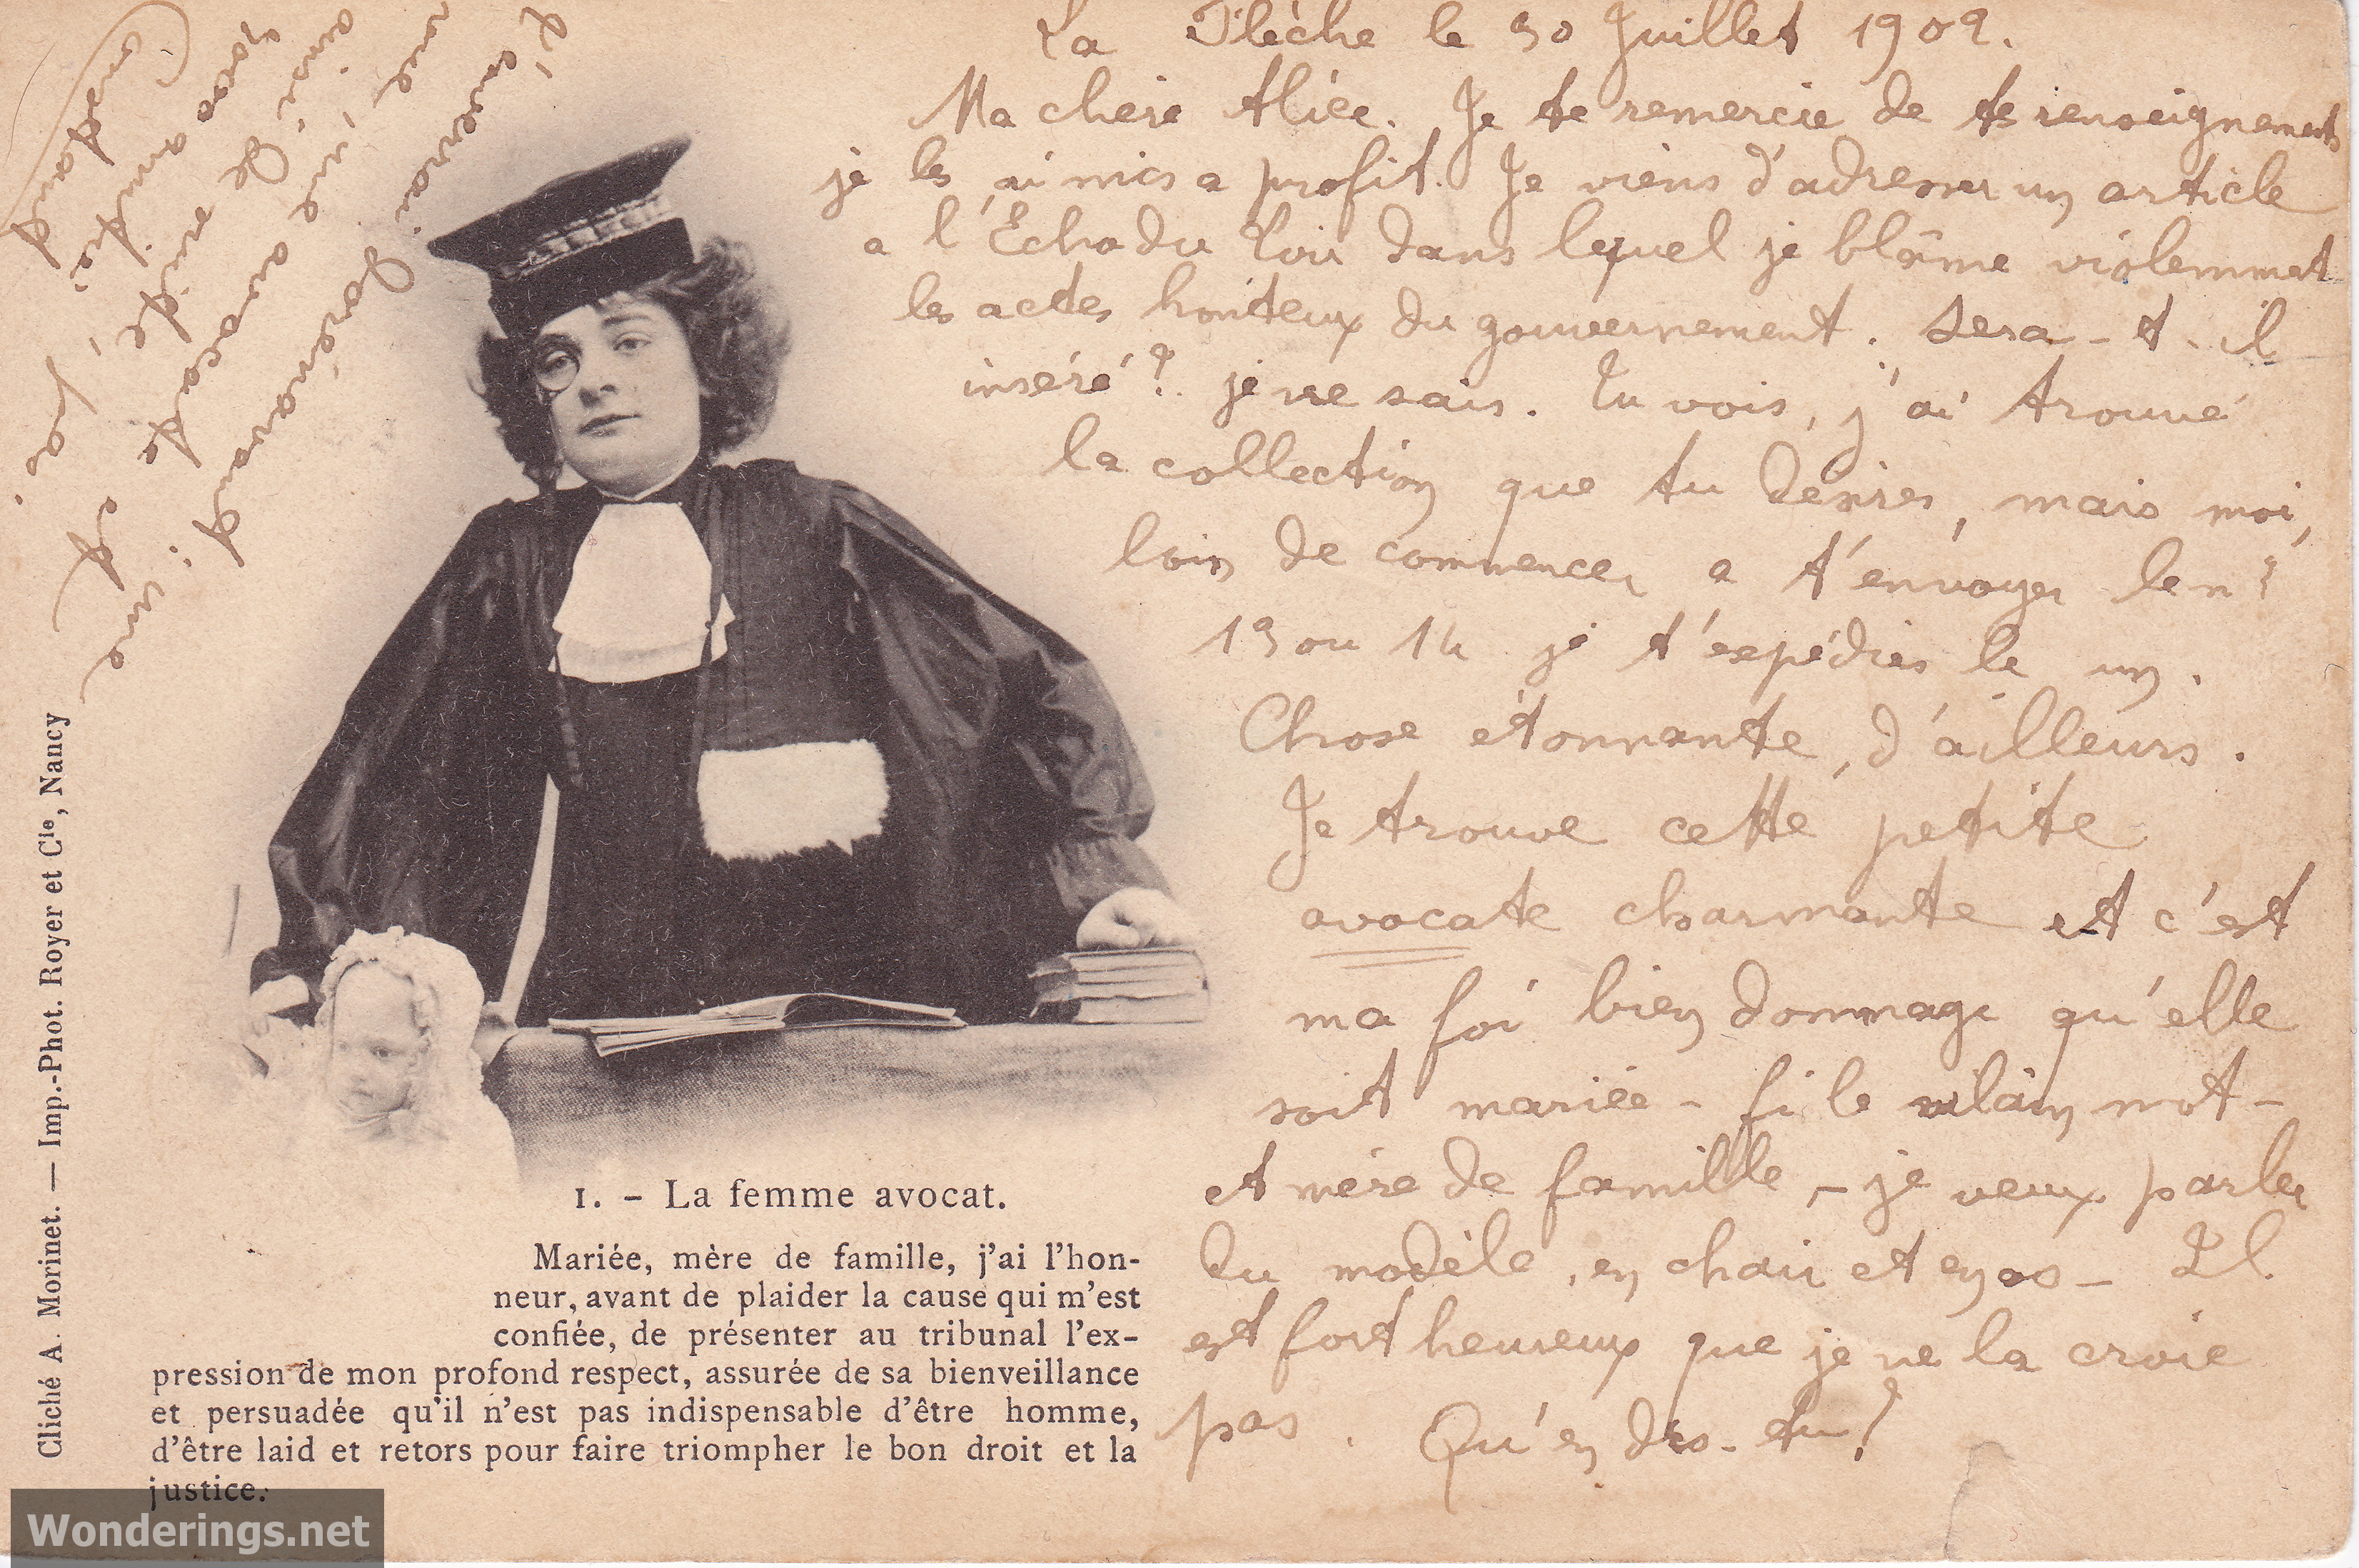 La Flèche le 30 Juillet 1902.
Ma chère Alice. Je te remercie de tes renseignements
je les ai mis a profit. Je viens d'adresser un article
a l'Echo du Loir dans lequel je blâme violemment
les actes honteux du gouvernement. Sera-t-il
inséré ? je ne sais. Tu vois, j'ai trouvé
la collection que tu desires, mais moi,
loin de commencer a t'envoyer le n°
13 ou 14 je t'expédies le un.
Chose étonnante, d'ailleurs.
Je trouve cette petite
avocate charmante et c'est
ma foi bien dommage qu'elle
soit mariée - fi le vilain mot -
et mère de famille, - je veux parler
du modèle, en chair et en os - Il
est fort heureux que je ne la croie
pas. Qu'en dis-tu ?
T'enverrai dorénavant : une
vue, une avocate et
ainsi de suite,
pas.
1. - La femme avocat.
Mariée, mère de famille, j'ai l'hon-
neur, avant de plaider la cause qui m'est
confiée, de présenter au tribunal l'ex-
pression de mon profond respect, assurée de sa bienveillance
et persuadée qu'il n'est pas indispensable d'être homme,
d'être laid et retors pour faire triompher le bon droit et la
justice.
Cliché A. Morinet. — Imp.-Phot. Royer et Cie, Nancy
Wonderings.net